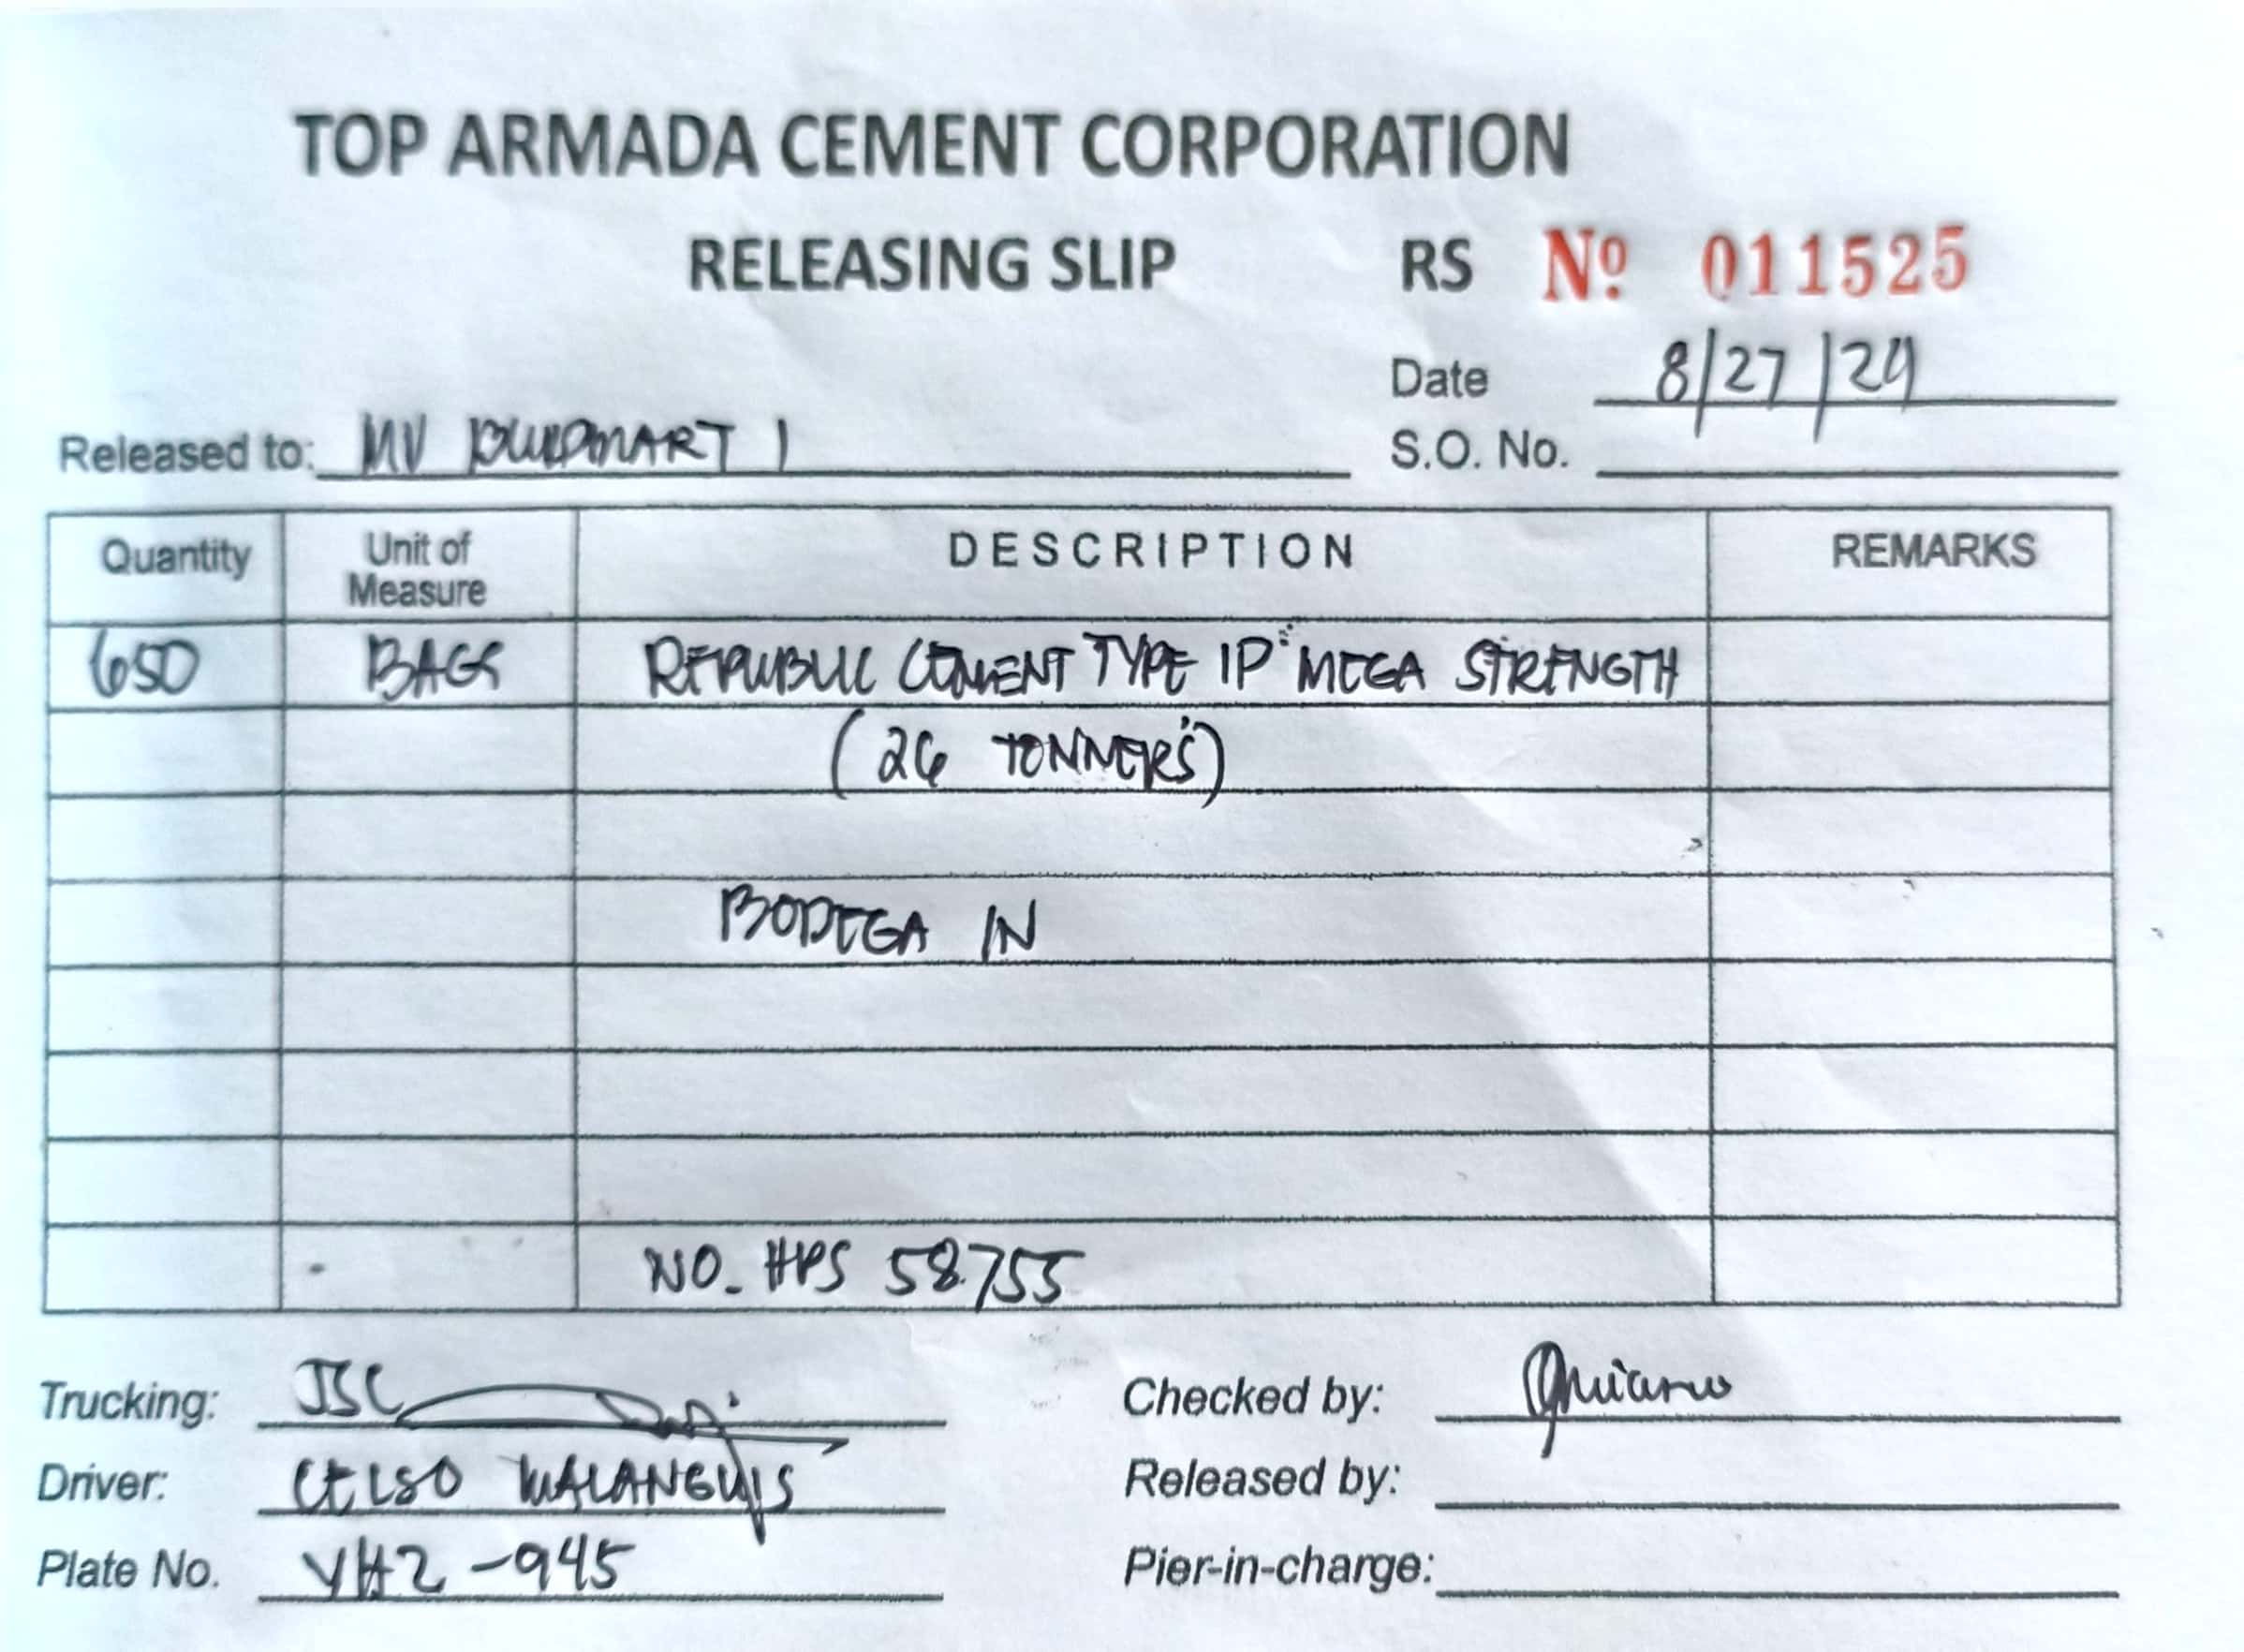 TOP ARMADA CEMENT CORPORATION
RELEASING SLIP RS Nº 011525
Date 8/27/24
Released to: MV BUILDMART 1 S.O. No.
Quantity Unit of Measure DESCRIPTION REMARKS
650 BAGS REPUBLIC CEMENT TYPE 1P "MEGA STRENGTH
(26 TONNER'S)
BODEGA IN
NO. HPS 58755
Trucking: JSC Checked by:
Driver: CELSO MALANGUIS Released by:
Plate No. YHZ-945 Pier-in-charge: